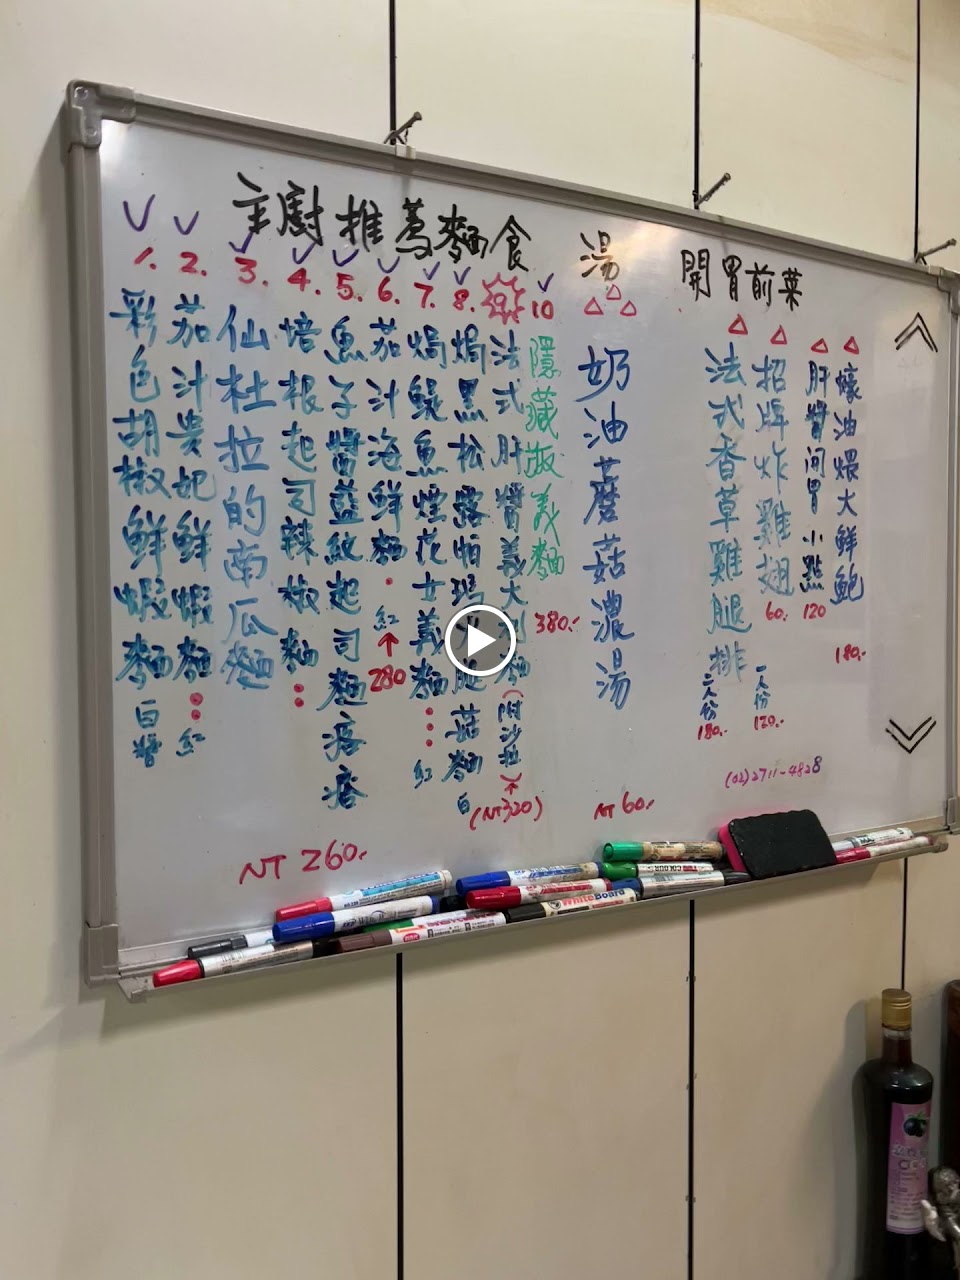 主廚推薦麵食
1. 彩色胡椒鮮蝦麵 白醬
2. 茄汁貴妃鮮蝦麵 紅
3. 仙杜拉的南瓜麵
4. 培根起司辣椒麵
5. 魚子醬藍紋起司麵疙瘩
6. 茄汁海鮮麵 紅 ↑ 280
7. 焗鯷魚煙花女義麵 紅
8. 焗黑松露帕瑪火腿菇麵 白
9. 法式肝醬義大利麵 (附沙拉)
(NT320)
10 隱藏版義麵 380.-
NT 260.-
湯
奶油蘑菇濃湯
NT 60.-
開胃前菜
法式香草雞腿排 二人份 180.-
招牌炸雞翅 60. 一人份 120.-
肝醬開胃小點 120
蠔油煨大鮮鮑 180.-
(02)2711-4828
WhiteBoard